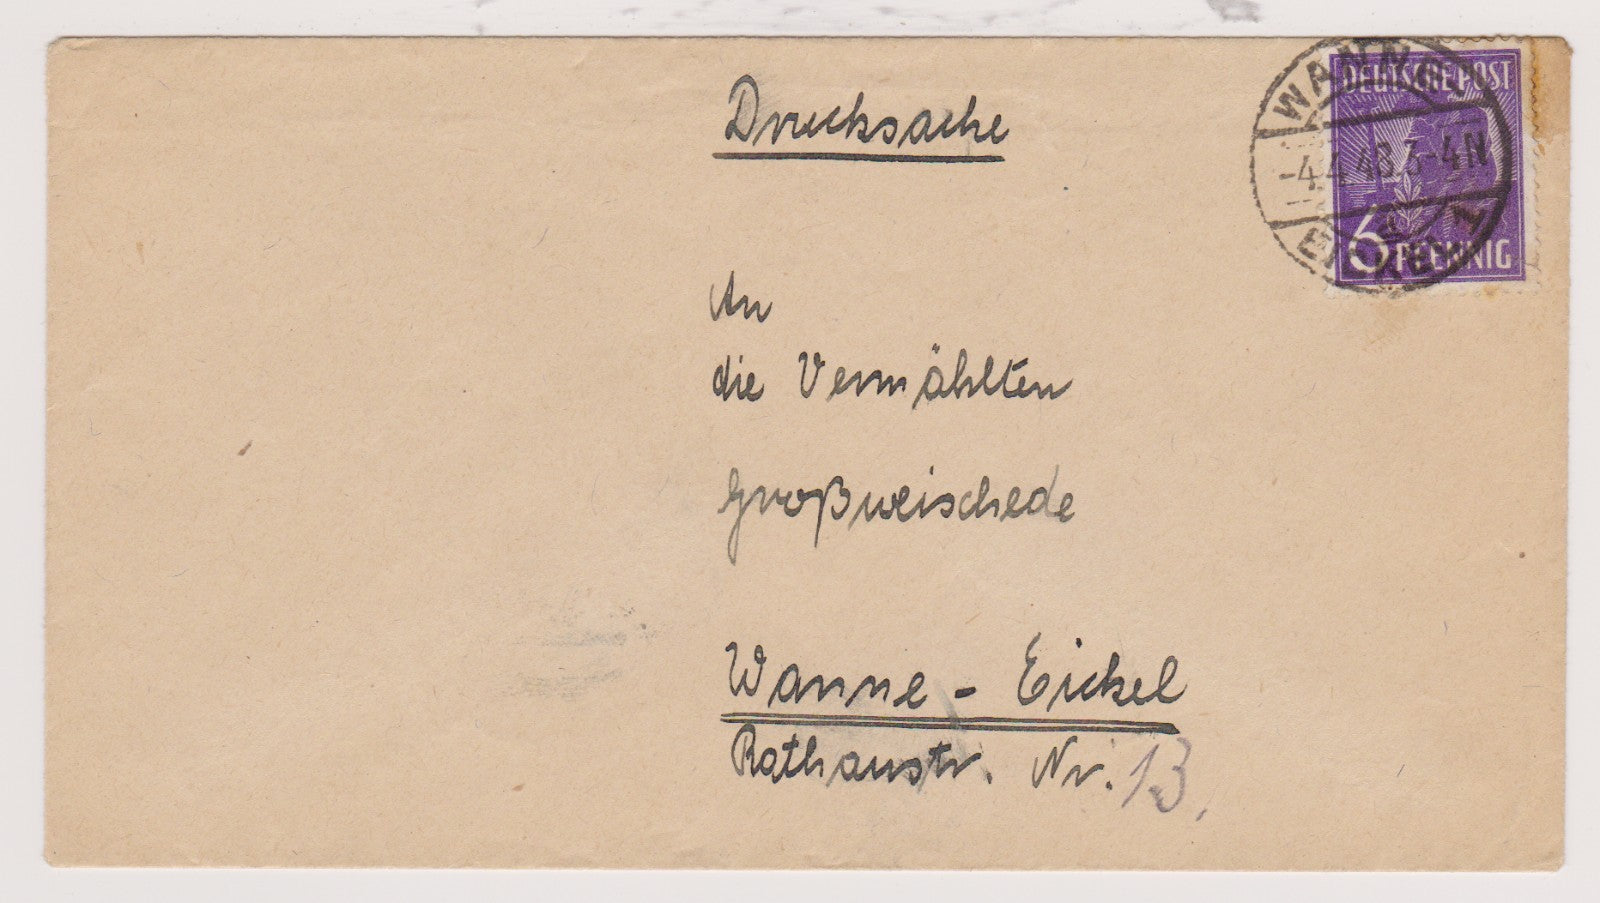 Drucksache
DEUTSCHE POST
WANNE
-4.4.48.3-4N
EICKEL 1
6 PFENNIG
An
die Vermählten
Großweischede
Wanne - Eickel
Rathausstr. Nr. 13.